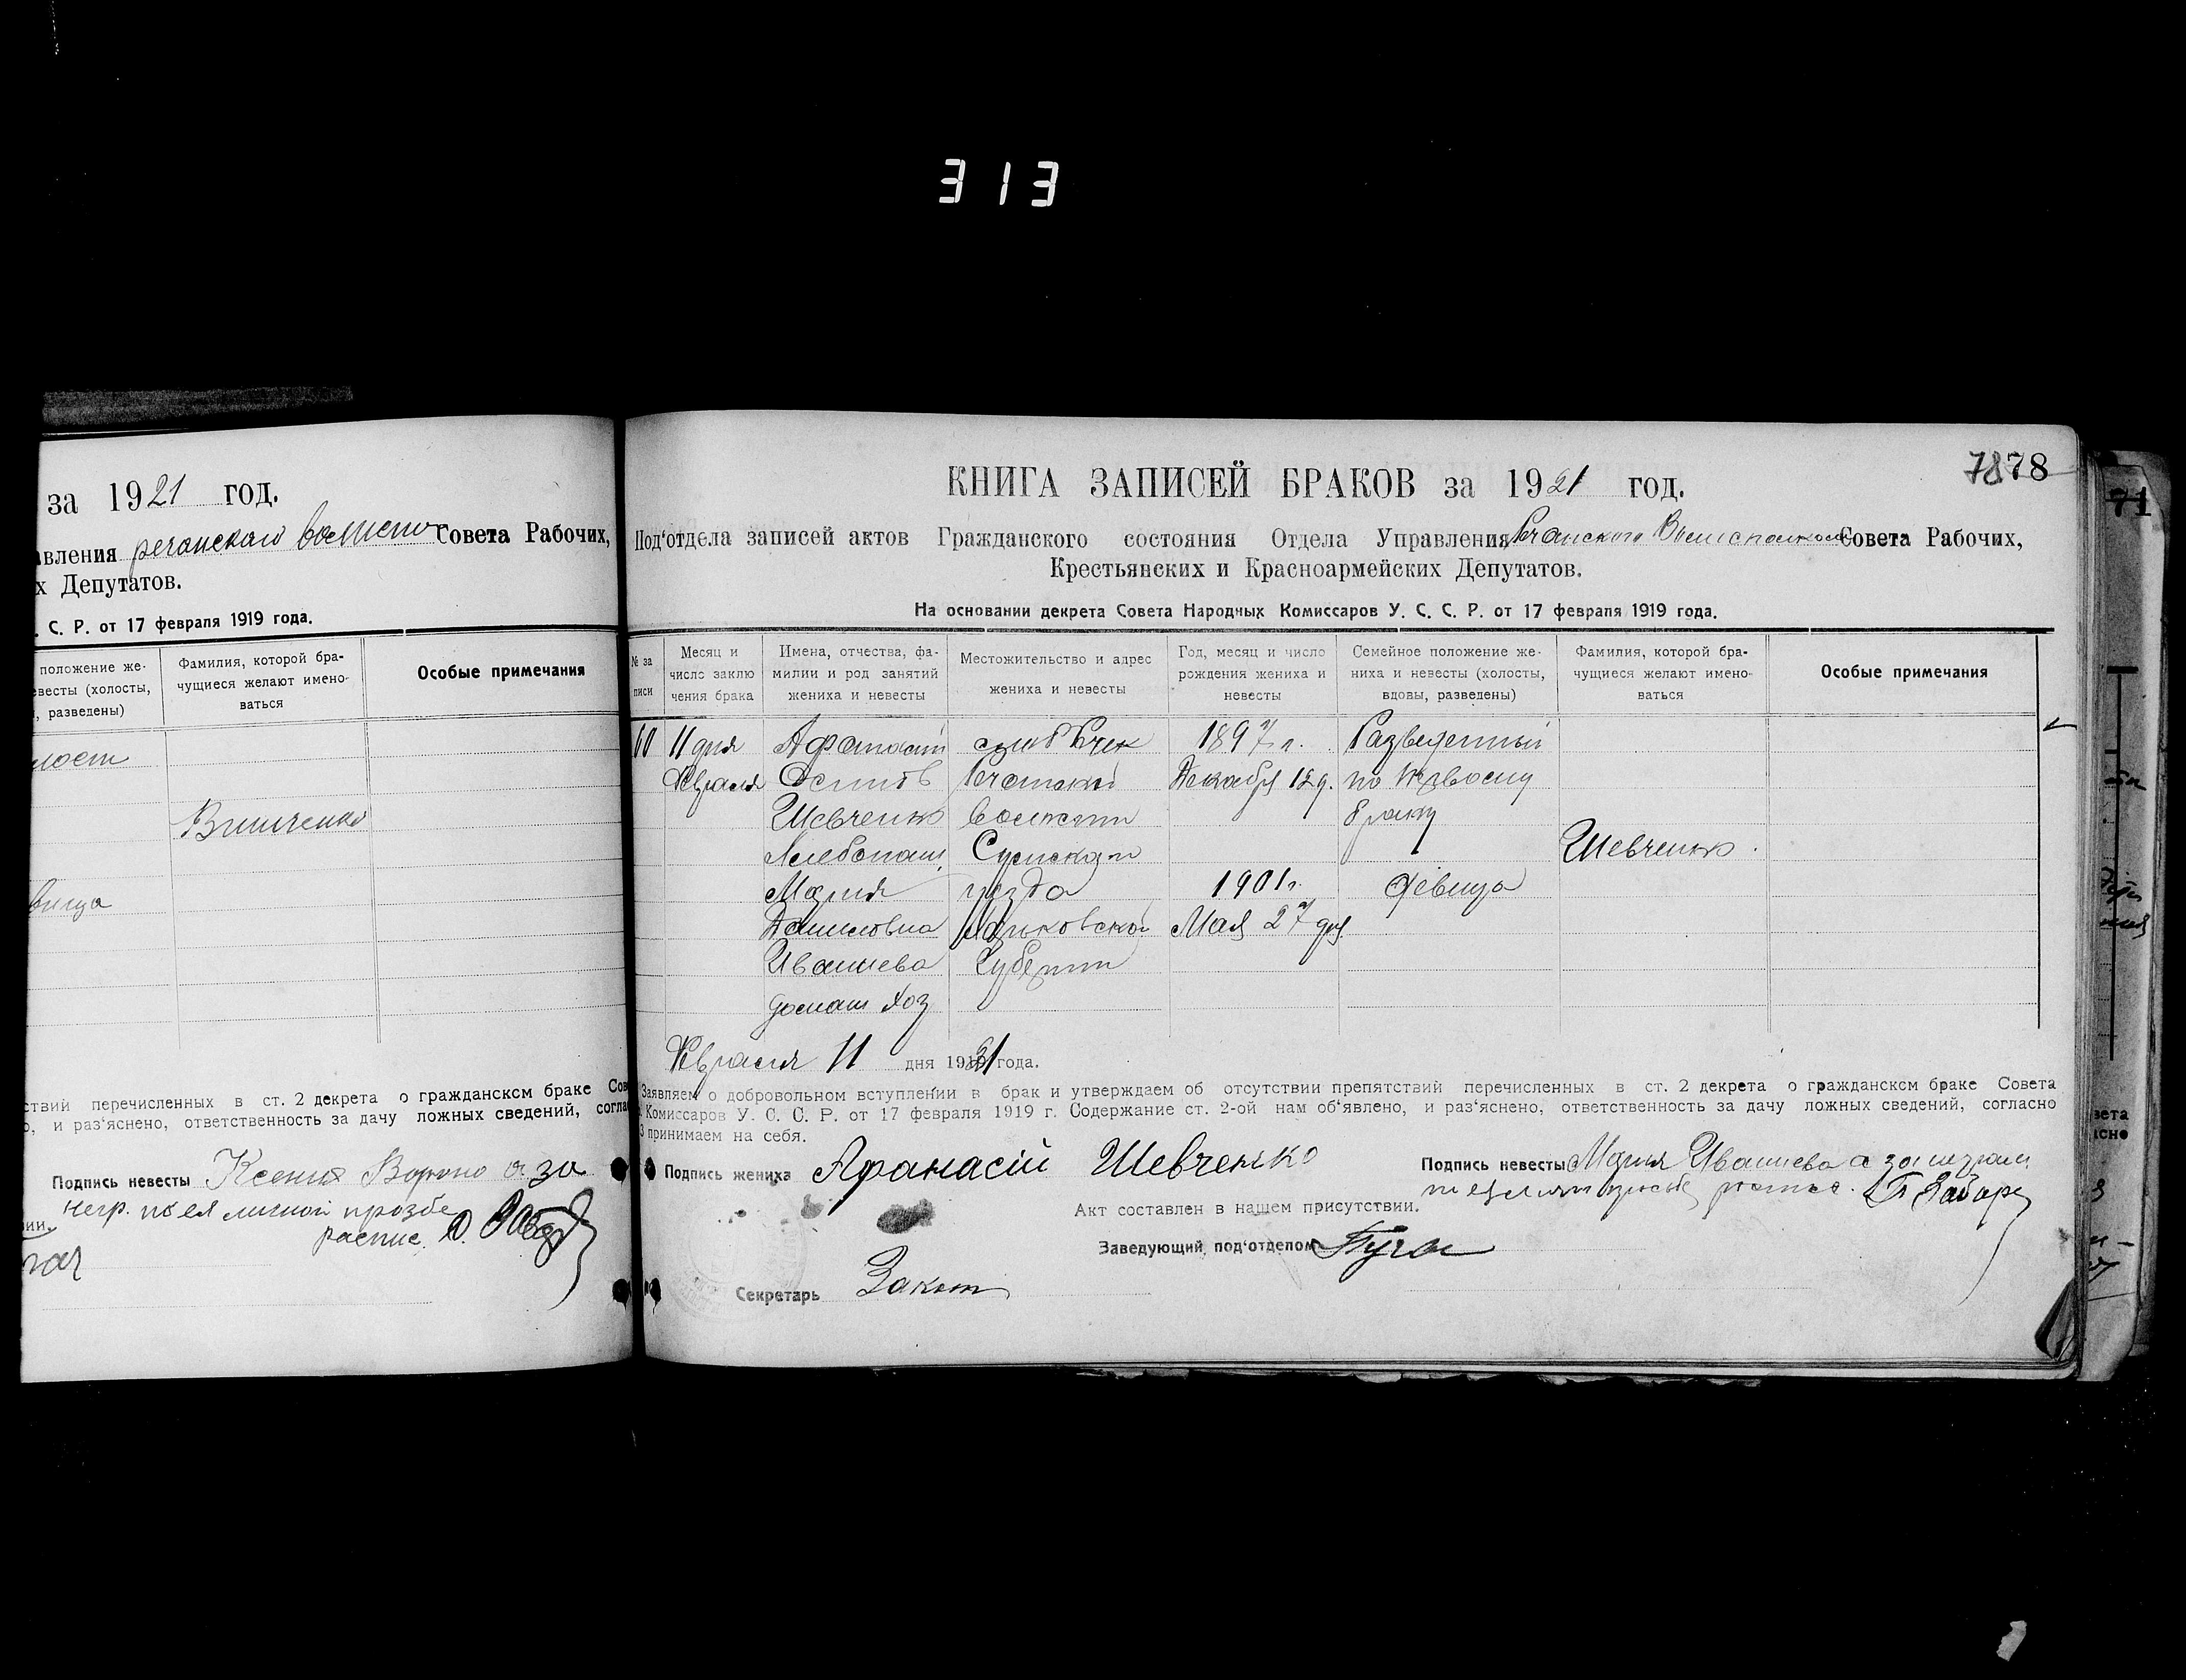 313
за 1921 год.
авления речанскаго Совета Рабочих,
х Депутатов.
. С. Р. от 17 февраля 1919 года.
положение же-
евесты (холосты,
, разведены)
Фамилия, которой бра-
чущиеся желают имено-
ваться
Особые примечания
лост
Винченко
вица
ствий перечисленных в ст. 2 декрета о гражданском браке Сов
о, и раз'яснено, ответственность за дачу ложных сведений, согла
Подпись невесты Ксения Вороно а за
негр. по ея личной прозбе
распис.
КНИГА ЗАПИСЕЙ БРАКОВ за 1921 год.
78 78
Под'отдела записей актов Гражданского состояния Отдела Управления Речанского Волисполком Совета Рабочих,
Крестьянских и Красноармейских Депутатов.
На основании декрета Совета Народных Комиссаров У. С. С. Р. от 17 февраля 1919 года.
№ за
писи
Месяц и
число заклю
чения брака
Имена, отчества, фа-
милии и род занятий
жениха и невесты
Местожительство и адрес
жениха и невесты
Год, месяц и число
рождения жениха и
невесты
Семейное положение же-
ниха и невесты (холосты,
вдовы, разведены)
Фамилия, которой бра-
чущиеся желают имено-
ваться
Особые примечания
60 11 дня Афанасий 1897 г. Разведенный
Февраля Осипов Речанской Декабря 12 д. по первому
Шевченко волости браку
Хлебопаш. Сумского Шевченко.
Мария уезда 1901 г. девица
Даниловна Харьковской Мая 27 дня
Ивашева Губернии
домаш хоз
Февраля 11 дня 1921 года.
Заявляем о добровольном вступлении в брак и утверждаем об отсутствии препятствий перечисленных в ст. 2 декрета о гражданском браке Совета
Комиссаров У. С. С. Р. от 17 февраля 1919 г. Содержание ст. 2-ой нам об'явлено, и раз'яснено, ответственность за дачу ложных сведений, согласно
3 принимаем на себя.
Подпись жениха Афанасій Шевченко
Подпись невесты Мария Ивашева а за неграм
Акт составлен в нашем присутствии.
Заведующий под'отделом
Секретарь
71